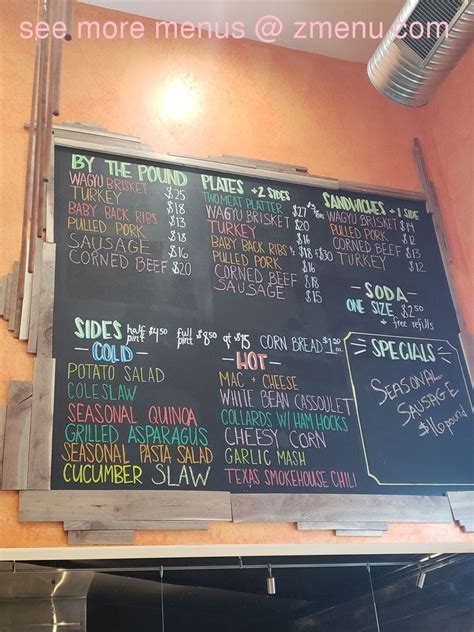 see more menus @ zmenu.com
BY THE POUND
WAGYU BRISKET $25
TURKEY $18
BABY BACK RIBS $18
PULLED PORK $13
SAUSAGE
CORNED BEEF $20
PLATES + 2 SIDES
TWO MEAT PLATTER $27
WAGYU BRISKET $20
TURKEY $16
BABY BACK RIBS ½ $18 $30
PULLED PORK $16
CORNED BEEF $18
SAUSAGE $15
SANDWICHES + 1 SIDE
WAGYU BRISKET $14
PULLED PORK $12
CORNED BEEF $13
TURKEY $12
SODA
ONE SIZE $2.50
+ free refills
SIDES half pint $4.50 full pint $8.50 qt $15 CORN BREAD
-COLD-
POTATO SALAD
COLESLAW
SEASONAL QUINOA
GRILLED ASPARAGUS
SEASONAL PASTA SALAD
CUCUMBER SLAW
-HOT-
MAC + CHEESE
WHITE BEAN CASSOULET
COLLARDS W/ HAM HOCKS
CHEESY CORN
GARLIC MASH
TEXAS SMOKEHOUSE CHILI
SPECIALS
SEASONAL
SAUSAGE
$16 pound